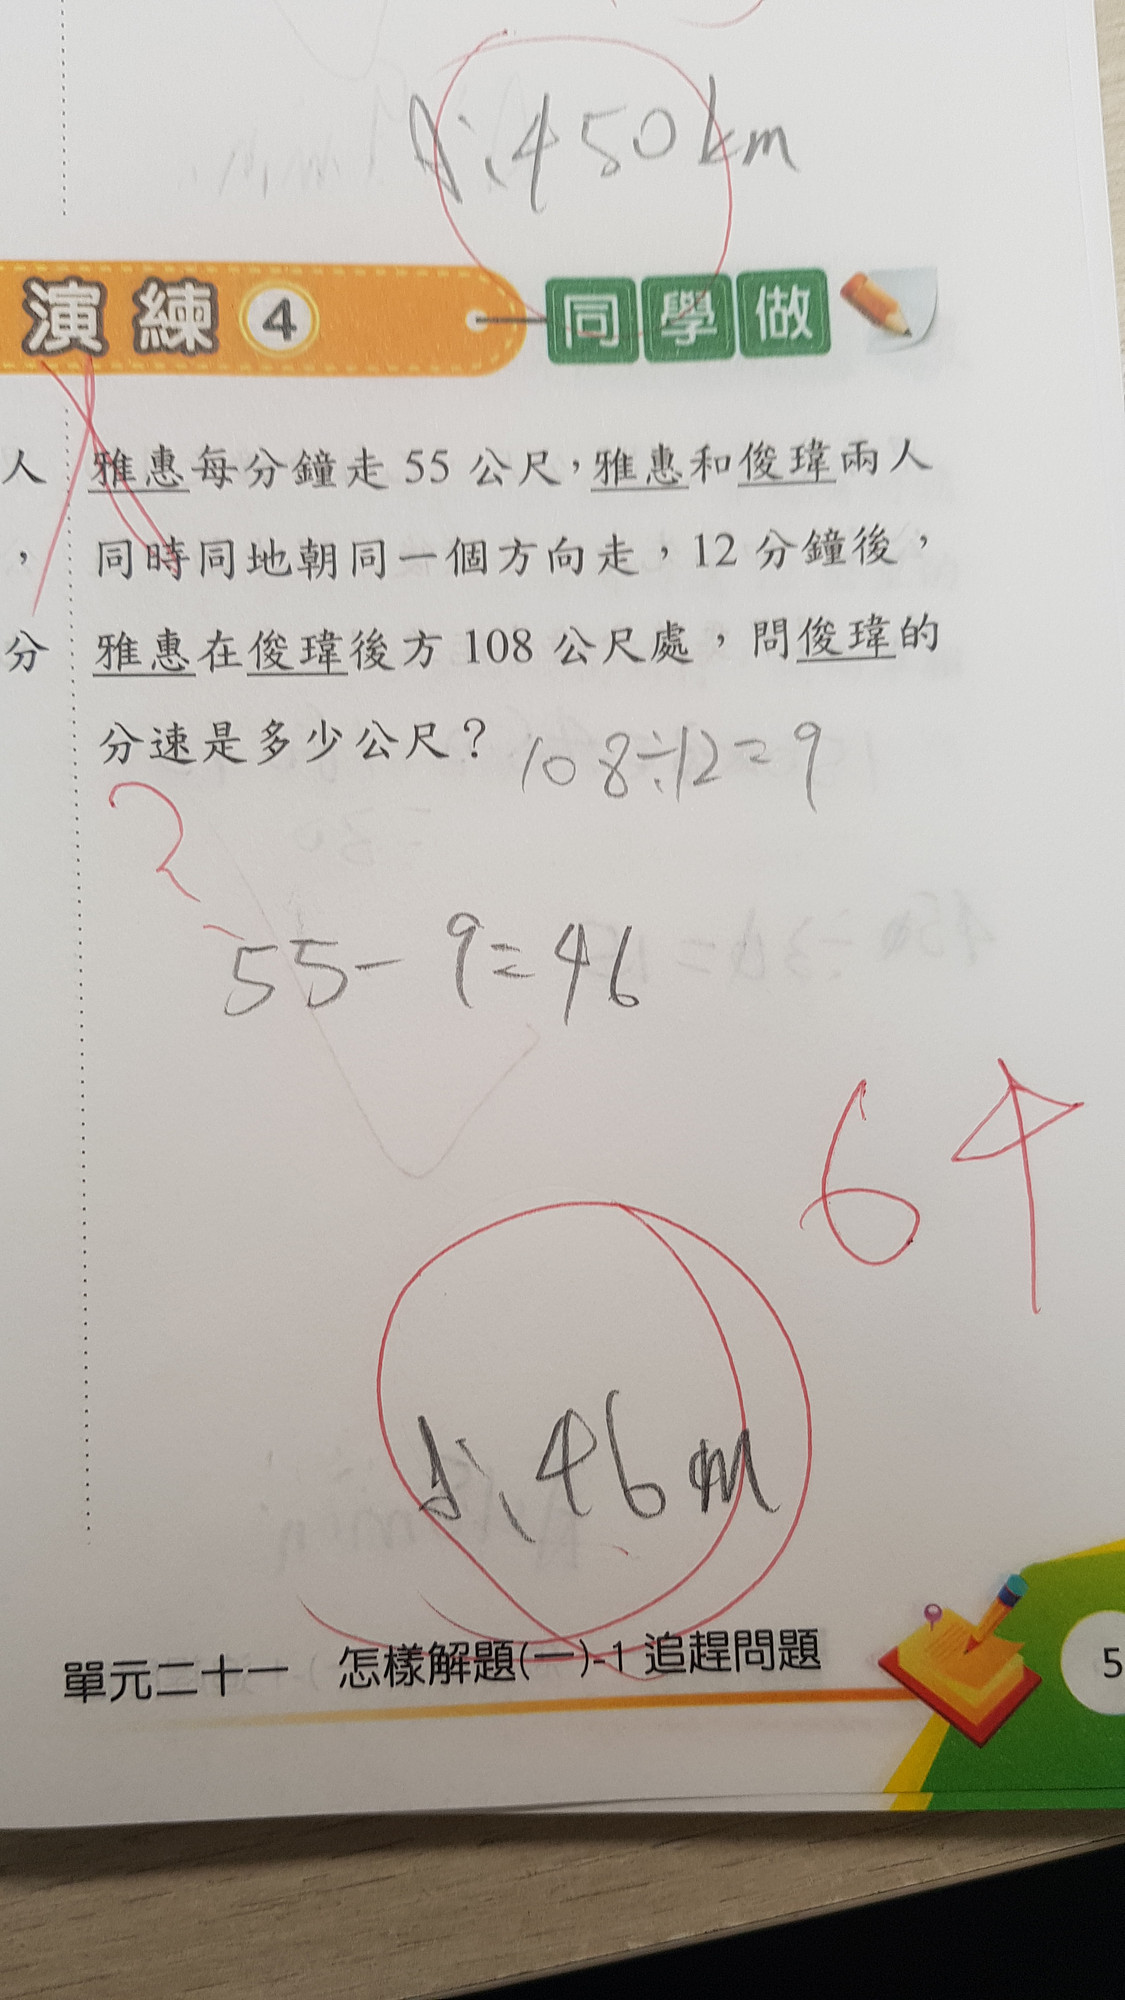 A:450km
演練4 同學做
人 雅惠每分鐘走 55 公尺,雅惠和俊瑋兩人
, 同時同地朝同一個方向走,12 分鐘後,
分 雅惠在俊瑋後方 108 公尺處,問俊瑋的
分速是多少公尺? 108÷12=9
55-9=46
64
A:46m
單元二十一 怎樣解題(一)-1 追趕問題 5